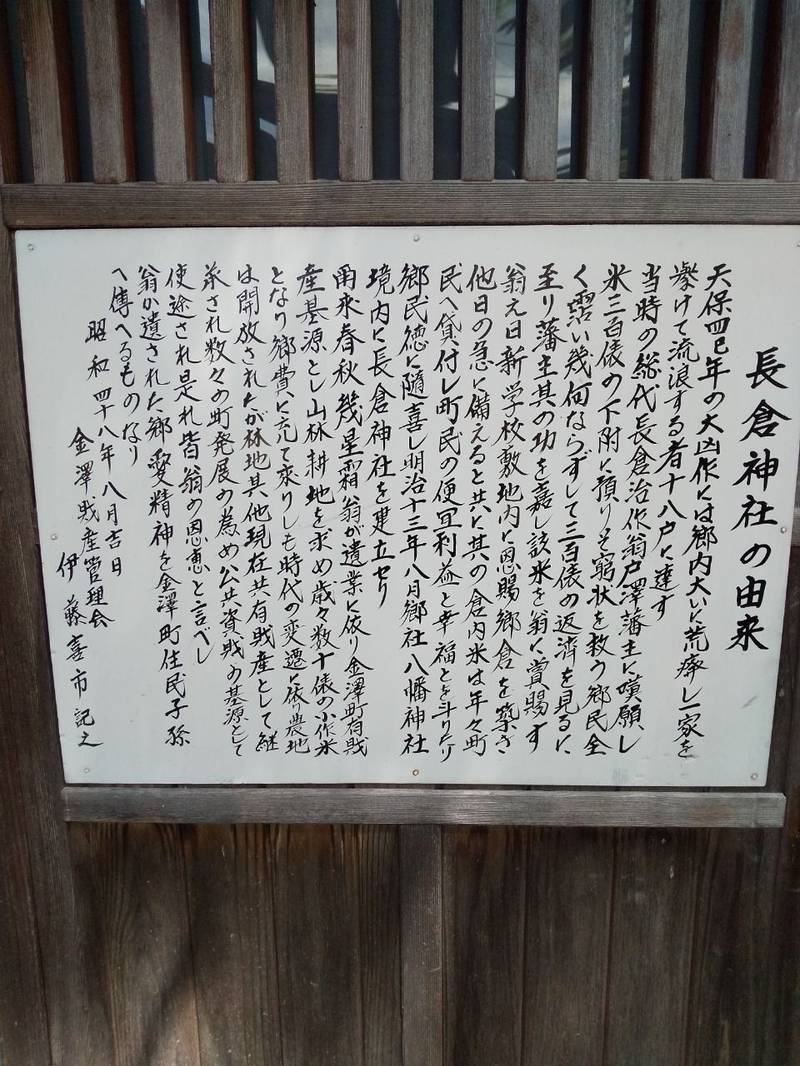 長倉神社の由来
天保四巳年の大凶作には郷内大いに荒廃し一家を
挙けて流浪する者十八戸に達す
当時の総代長倉治作翁戸澤藩主に嘆願し
米三百俵の下附に預りその窮状を救う郷民全
く霑い幾何ならずして三百俵の返済を見るに
至り藩主其の功を嘉し該米を翁に賞賜す
翁え日新学校敷地内に恩賜郷倉を築き
他日の急に備えると共に其の倉内米は年々町
民へ貸付し町民の便宜利益と幸福とを斗りたり
郷民徳に隨喜し明治十三年八月郷社八幡神社
境内に長倉神社を建立せり
爾来春秋幾星霜翁が遺業に依り金澤町有戝
産基源とし山林耕地を求め歳々数十俵の小作米
となり郷費に充て来りしも時代の変遷に依り農地
は開放されたが林地其他現在共有戝産として継
承され数々の町発展の為め公共資戝の基源として
使途され是れ皆翁の恩恵と言べし
翁か遺された郷愛精神を金澤町住民子孫
へ傳へるものなり
昭和四十八年八月吉日
金澤戝産管理会
伊藤喜市記之